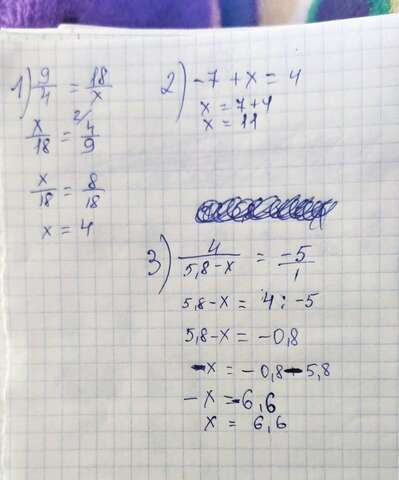 1) 9/4 = 18/x
x/18 = 4/9 2/
x/18 = 8/18
x = 4
2) -7 + x = 4
x = 7+4
x = 11
3) 4/(5,8-x) = -5/1
5,8-x = 4 : -5
5,8-x = -0,8
-x = -0,8-5,8
-x = -6,6
x = 6,6